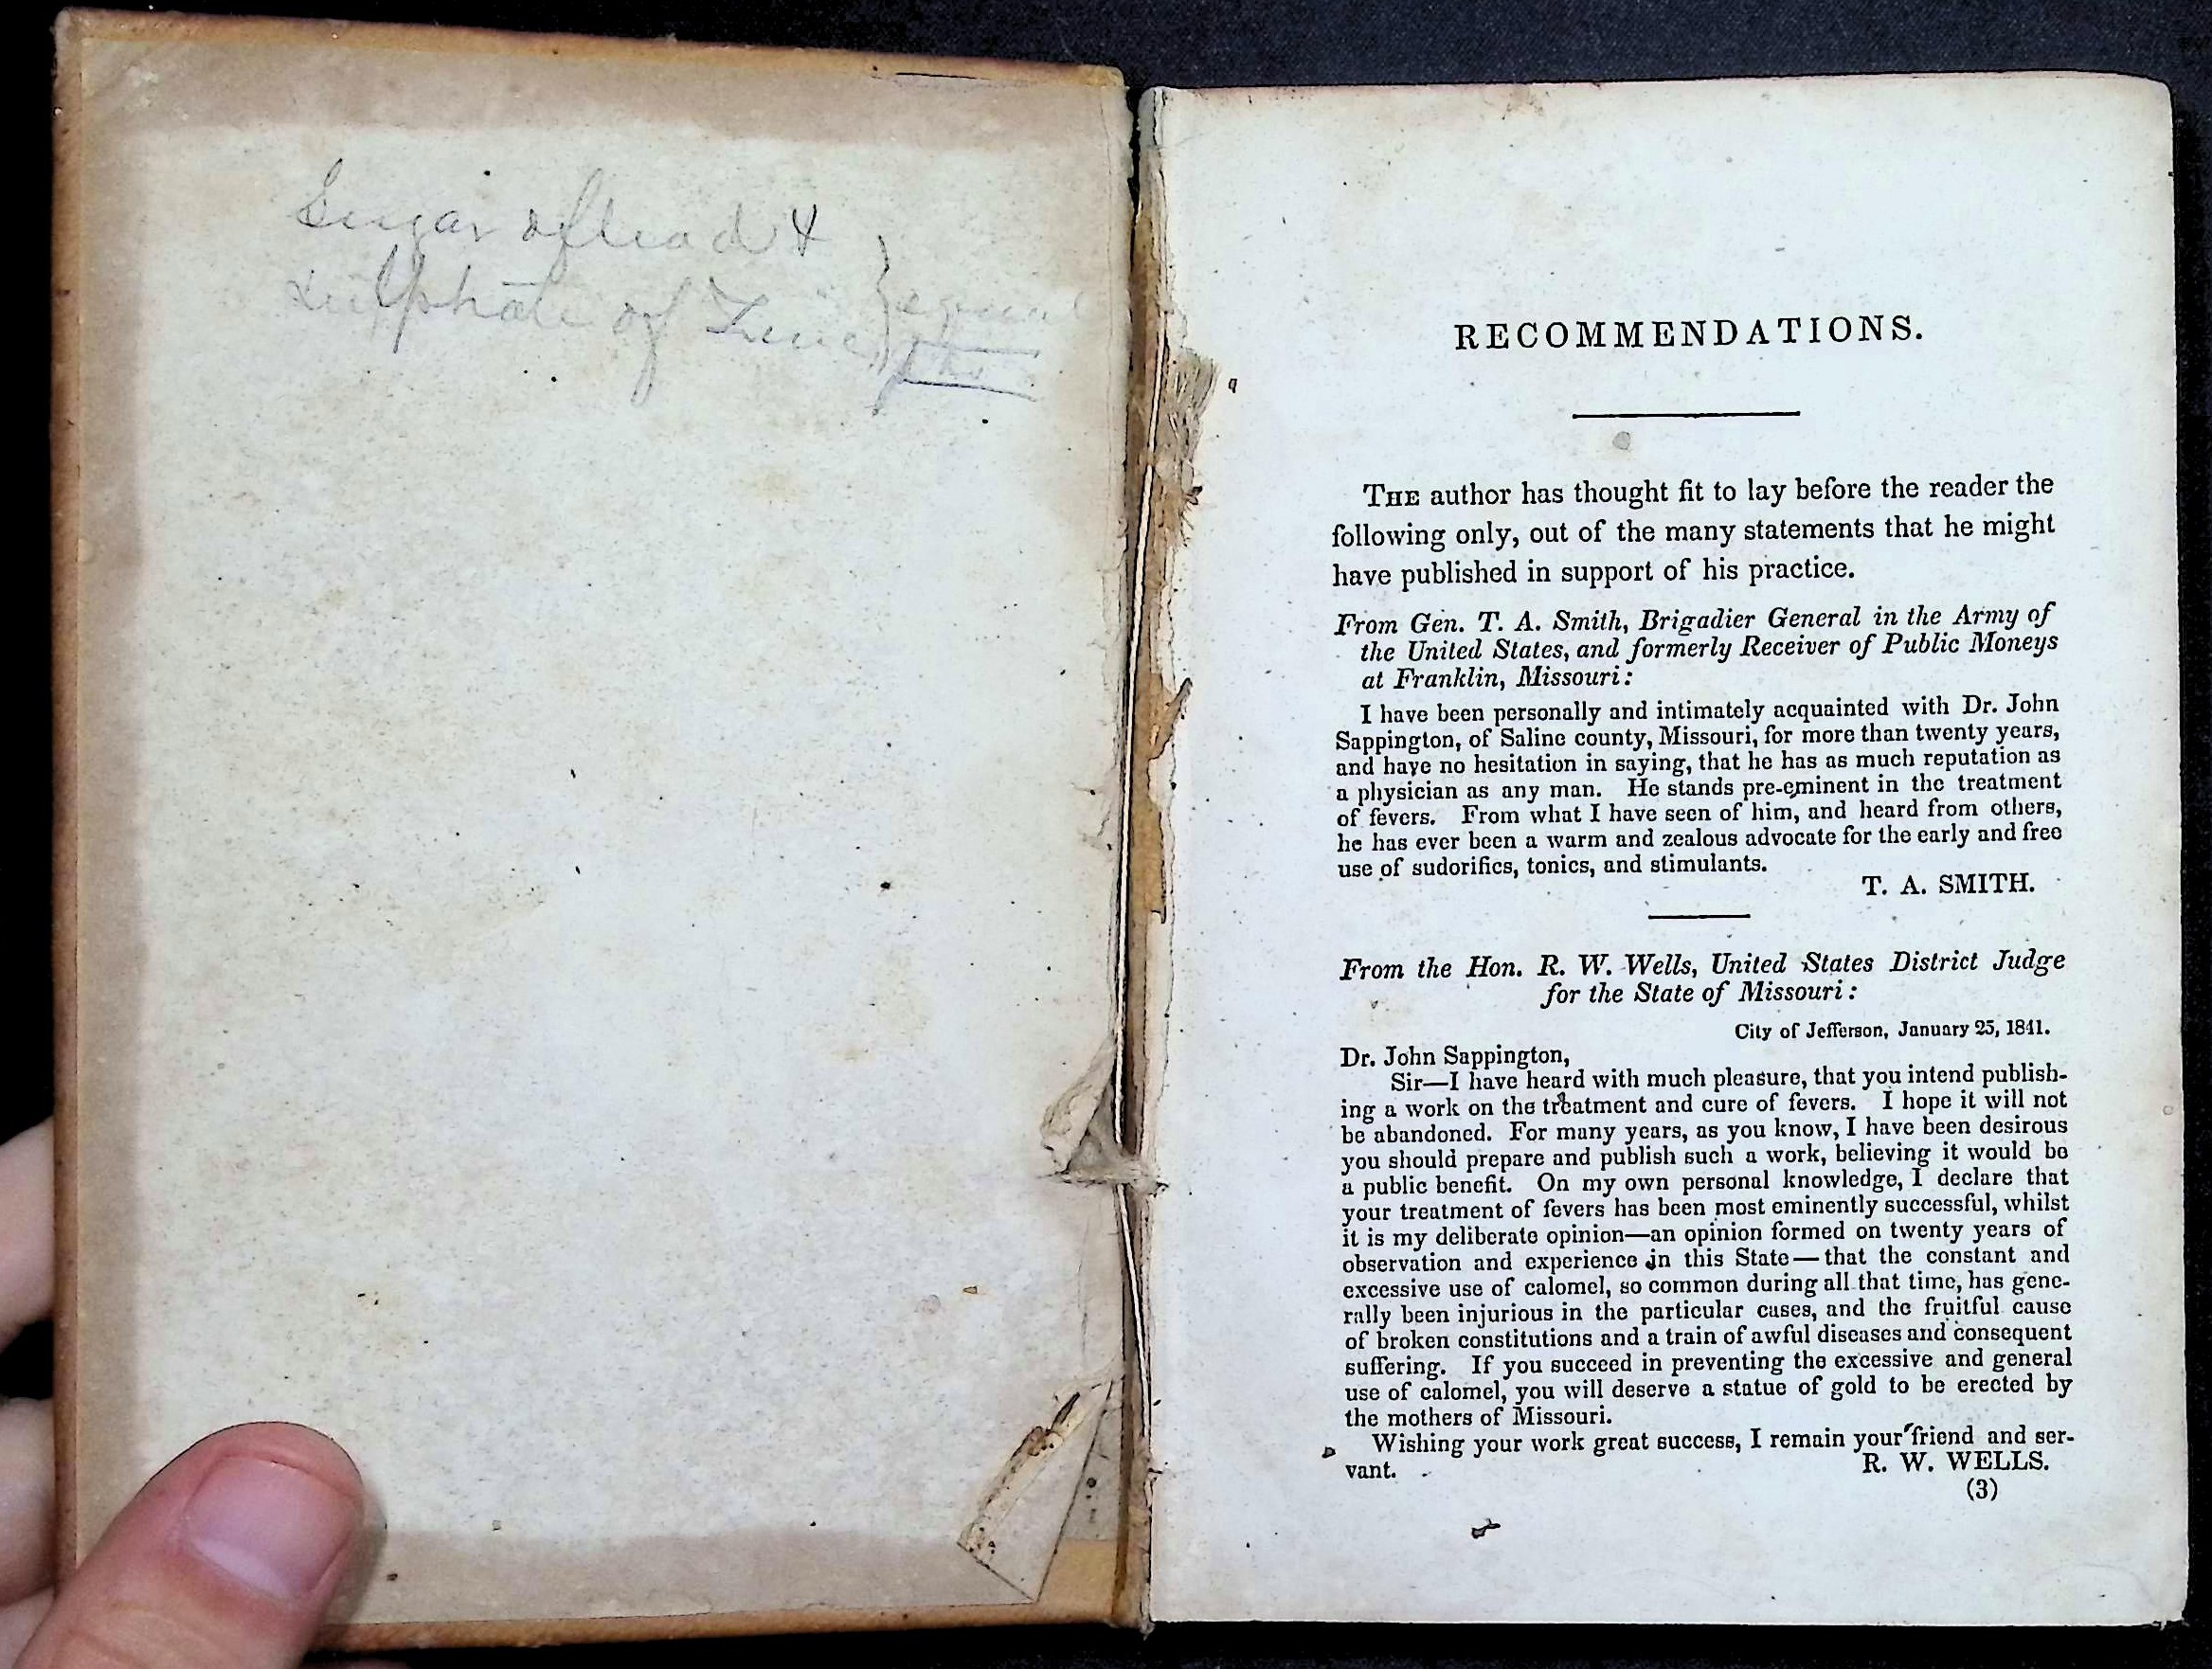 Sugar of lead &
sulphate of Zinc } equal
pts
RECOMMENDATIONS.
THE author has thought fit to lay before the reader the
following only, out of the many statements that he might
have published in support of his practice.
From Gen. T. A. Smith, Brigadier General in the Army of
the United States, and formerly Receiver of Public Moneys
at Franklin, Missouri:
I have been personally and intimately acquainted with Dr. John
Sappington, of Saline county, Missouri, for more than twenty years,
and have no hesitation in saying, that he has as much reputation as
a physician as any man. He stands pre-eminent in the treatment
of fevers. From what I have seen of him, and heard from others,
he has ever been a warm and zealous advocate for the early and free
use of sudorifics, tonics, and stimulants.
T. A. SMITH.
From the Hon. R. W. Wells, United States District Judge
for the State of Missouri:
City of Jefferson, January 25, 1841.
Dr. John Sappington,
Sir—I have heard with much pleasure, that you intend publish-
ing a work on the treatment and cure of fevers. I hope it will not
be abandoned. For many years, as you know, I have been desirous
you should prepare and publish such a work, believing it would be
a public benefit. On my own personal knowledge, I declare that
your treatment of fevers has been most eminently successful, whilst
it is my deliberate opinion—an opinion formed on twenty years of
observation and experience in this State—that the constant and
excessive use of calomel, so common during all that time, has gene-
rally been injurious in the particular cases, and the fruitful cause
of broken constitutions and a train of awful diseases and consequent
suffering. If you succeed in preventing the excessive and general
use of calomel, you will deserve a statue of gold to be erected by
the mothers of Missouri.
Wishing your work great success, I remain your friend and ser-
vant. R. W. WELLS.
(3)